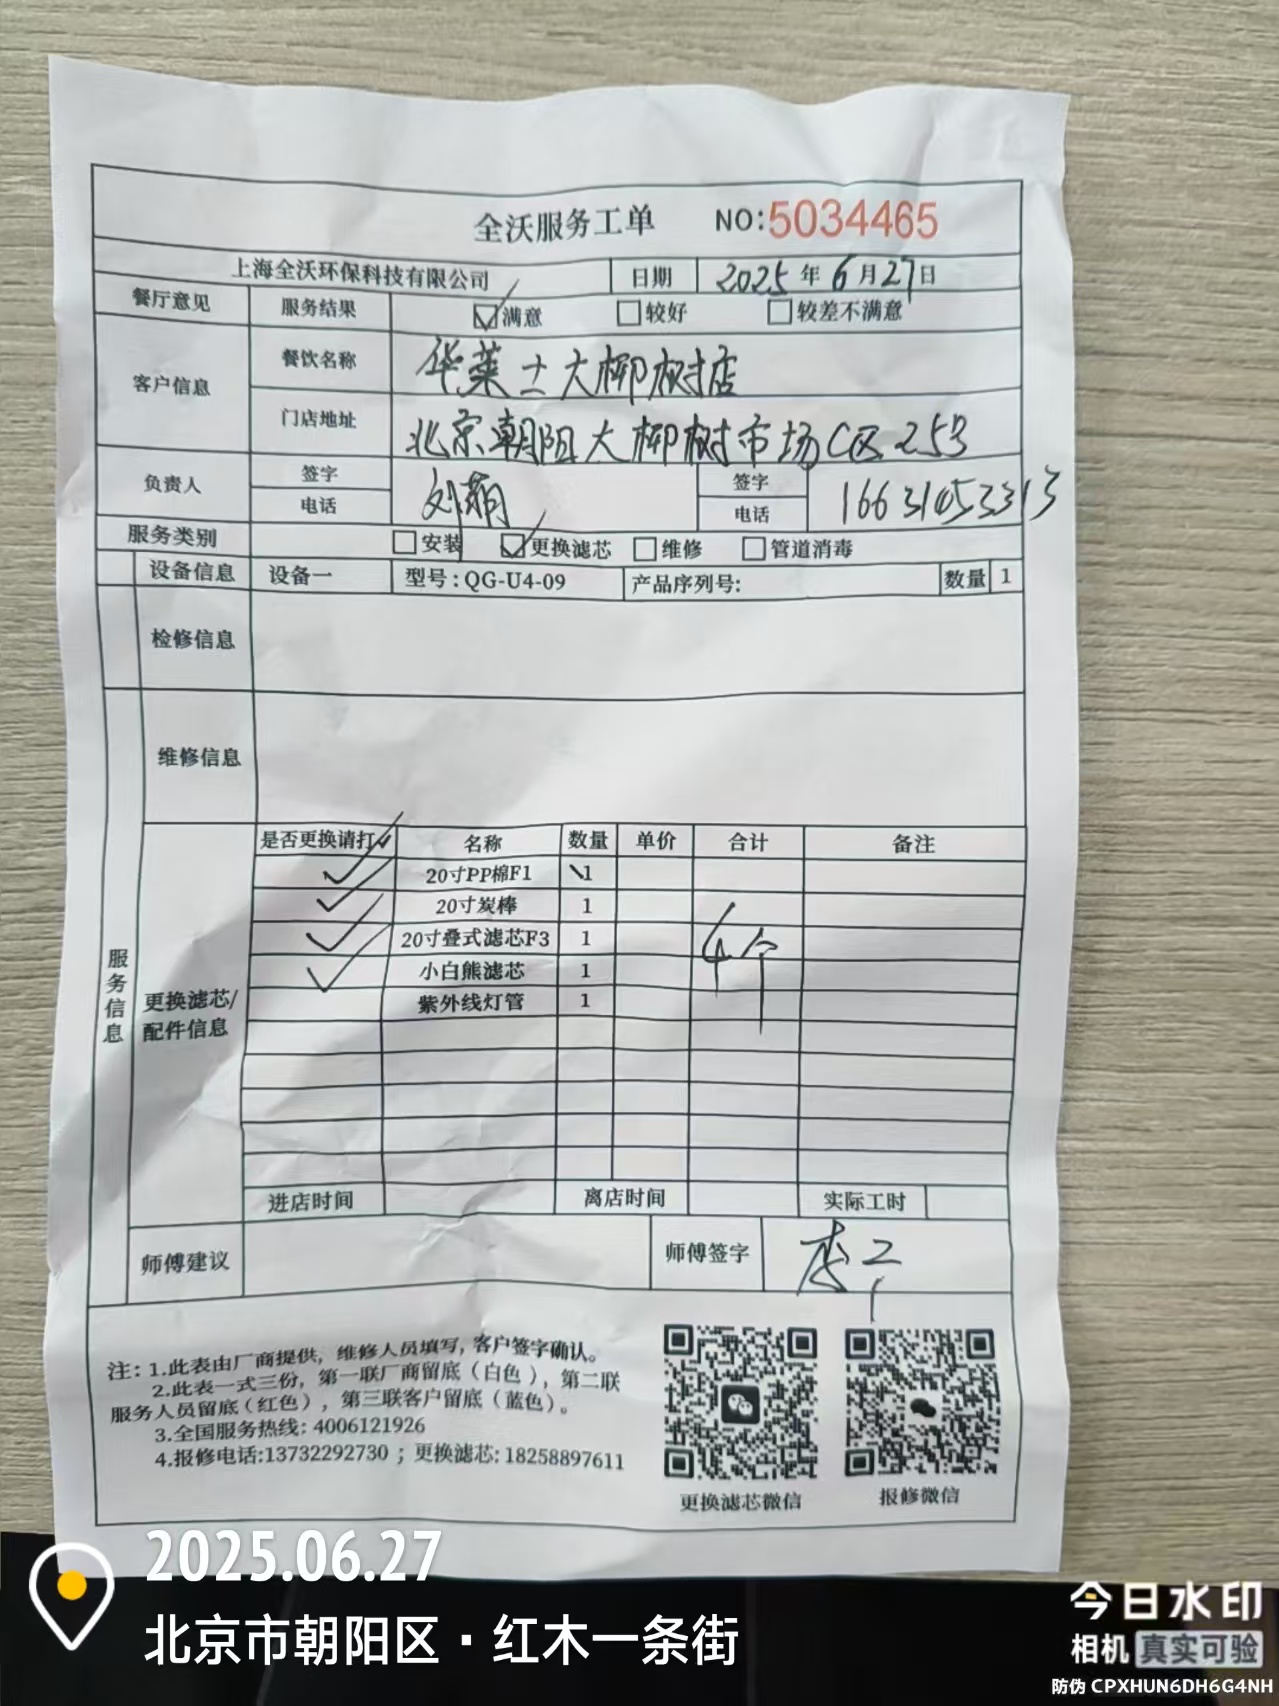 全沃服务工单 NO:5034465
上海全沃环保科技有限公司 日期 2025年6月27日
餐厅意见 服务结果 满意 较好 较差不满意
客户信息 餐饮名称 华莱士大柳树店
门店地址 北京朝阳大柳树市场C区253
负责人 签字 刘萌 签字
电话 电话 16631453313
服务类别 安装 更换滤芯 维修 管道消毒
设备信息 设备一 型号:QG-U4-09 产品序列号: 数量 1
检修信息
维修信息
服务信息
更换滤芯/配件信息
是否更换请打✓ 名称 数量 单价 合计 备注
✓ 20寸PP棉F1 1
✓ 20寸炭棒 1
✓ 20寸叠式滤芯F3 1 4个
✓ 小白熊滤芯 1
紫外线灯管 1
进店时间 离店时间 实际工时
师傅建议 师傅签字 李
注:1.此表由厂商提供,维修人员填写,客户签字确认。
2.此表一式三份,第一联厂商留底(白色),第二联
服务人员留底(红色),第三联客户留底(蓝色)。
3.全国服务热线:4006121926
4.报修电话:13732292730 ;更换滤芯:18258897611
更换滤芯微信 报修微信
2025.06.27
北京市朝阳区·红木一条街
今日水印
相机 真实可验
防伪 CPXHUN6DH6G4NH